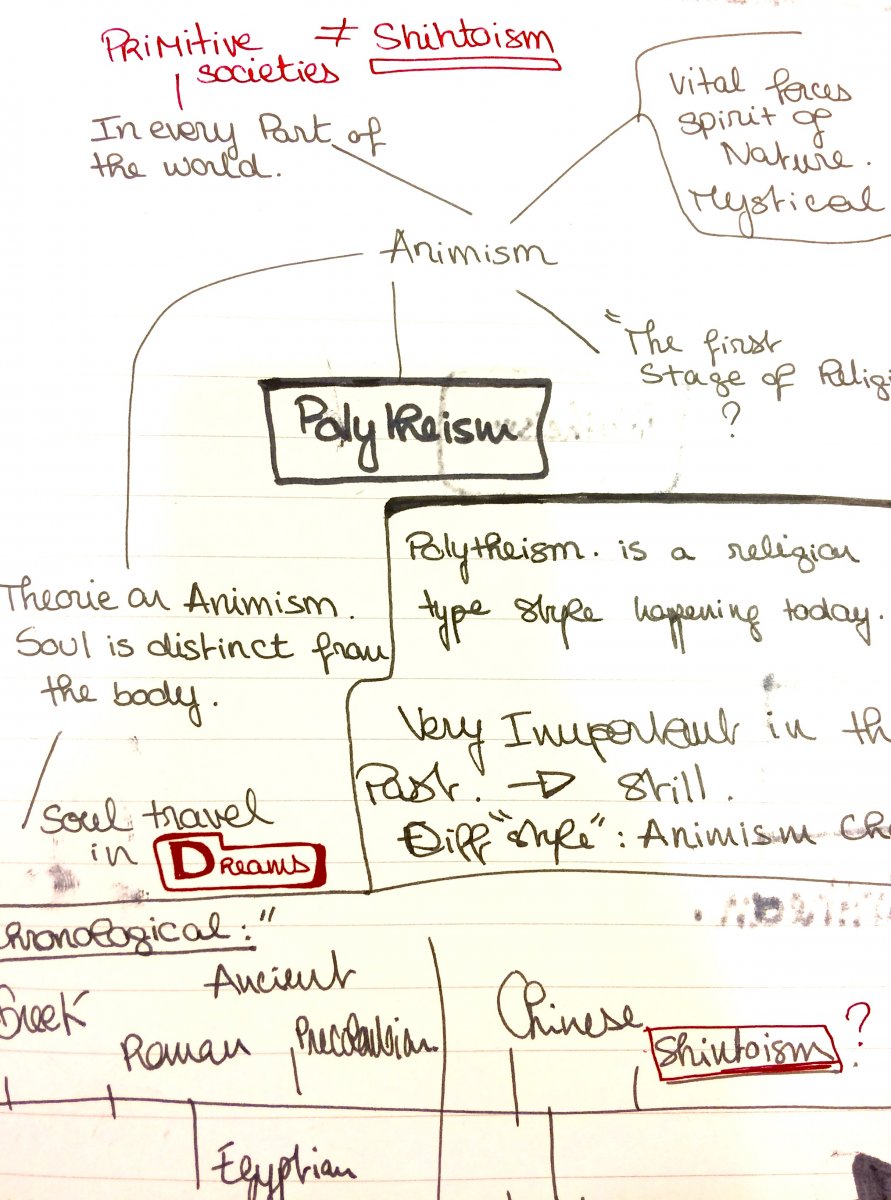 PRIMITIVE ≠ Shintoism
societies
In every Part of
the world.
Vital forces
spirit of
Nature.
Mystical
Animism
"The first
Stage of Religi
?
Polytheism
Polytheism. is a religion
type style happening today.
Theorie on Animism.
Soul is distinct from
the body.
Very Inuportant in th
Past. → still.
Diff "style": Animism Ch
Soul travel
in DREAMS
chronological:"
Ancient
Greek
Roman
Precolombian
Chinese
Shintoism ?
Egyptian